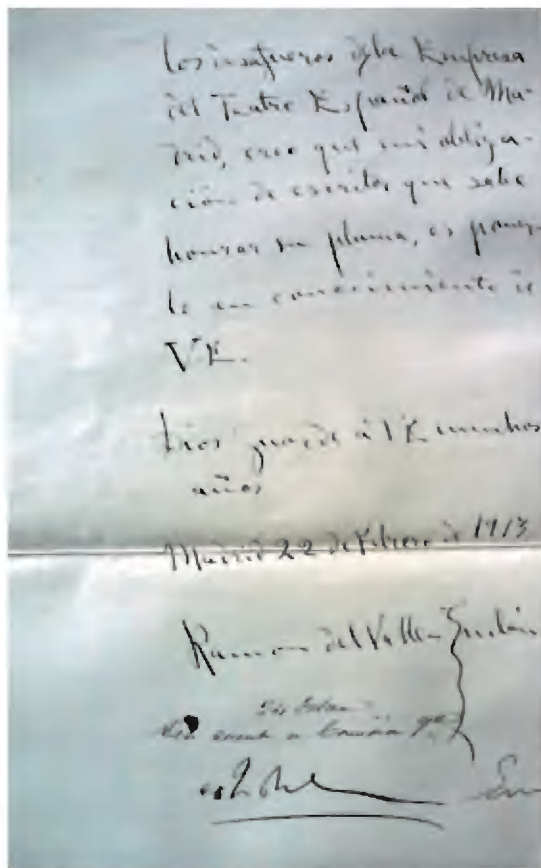 los desafueros de la Empresa
del Teatro Español de Ma-
drid, creo que mi obliga-
ción de escritor que sabe
honrar su pluma, es poner-
lo en conocimiento de
V E.
Dios guarde á V E muchos
años
Madrid 22 de Febrero de 1913
Ramon del Valle-Inclán
cuenta a